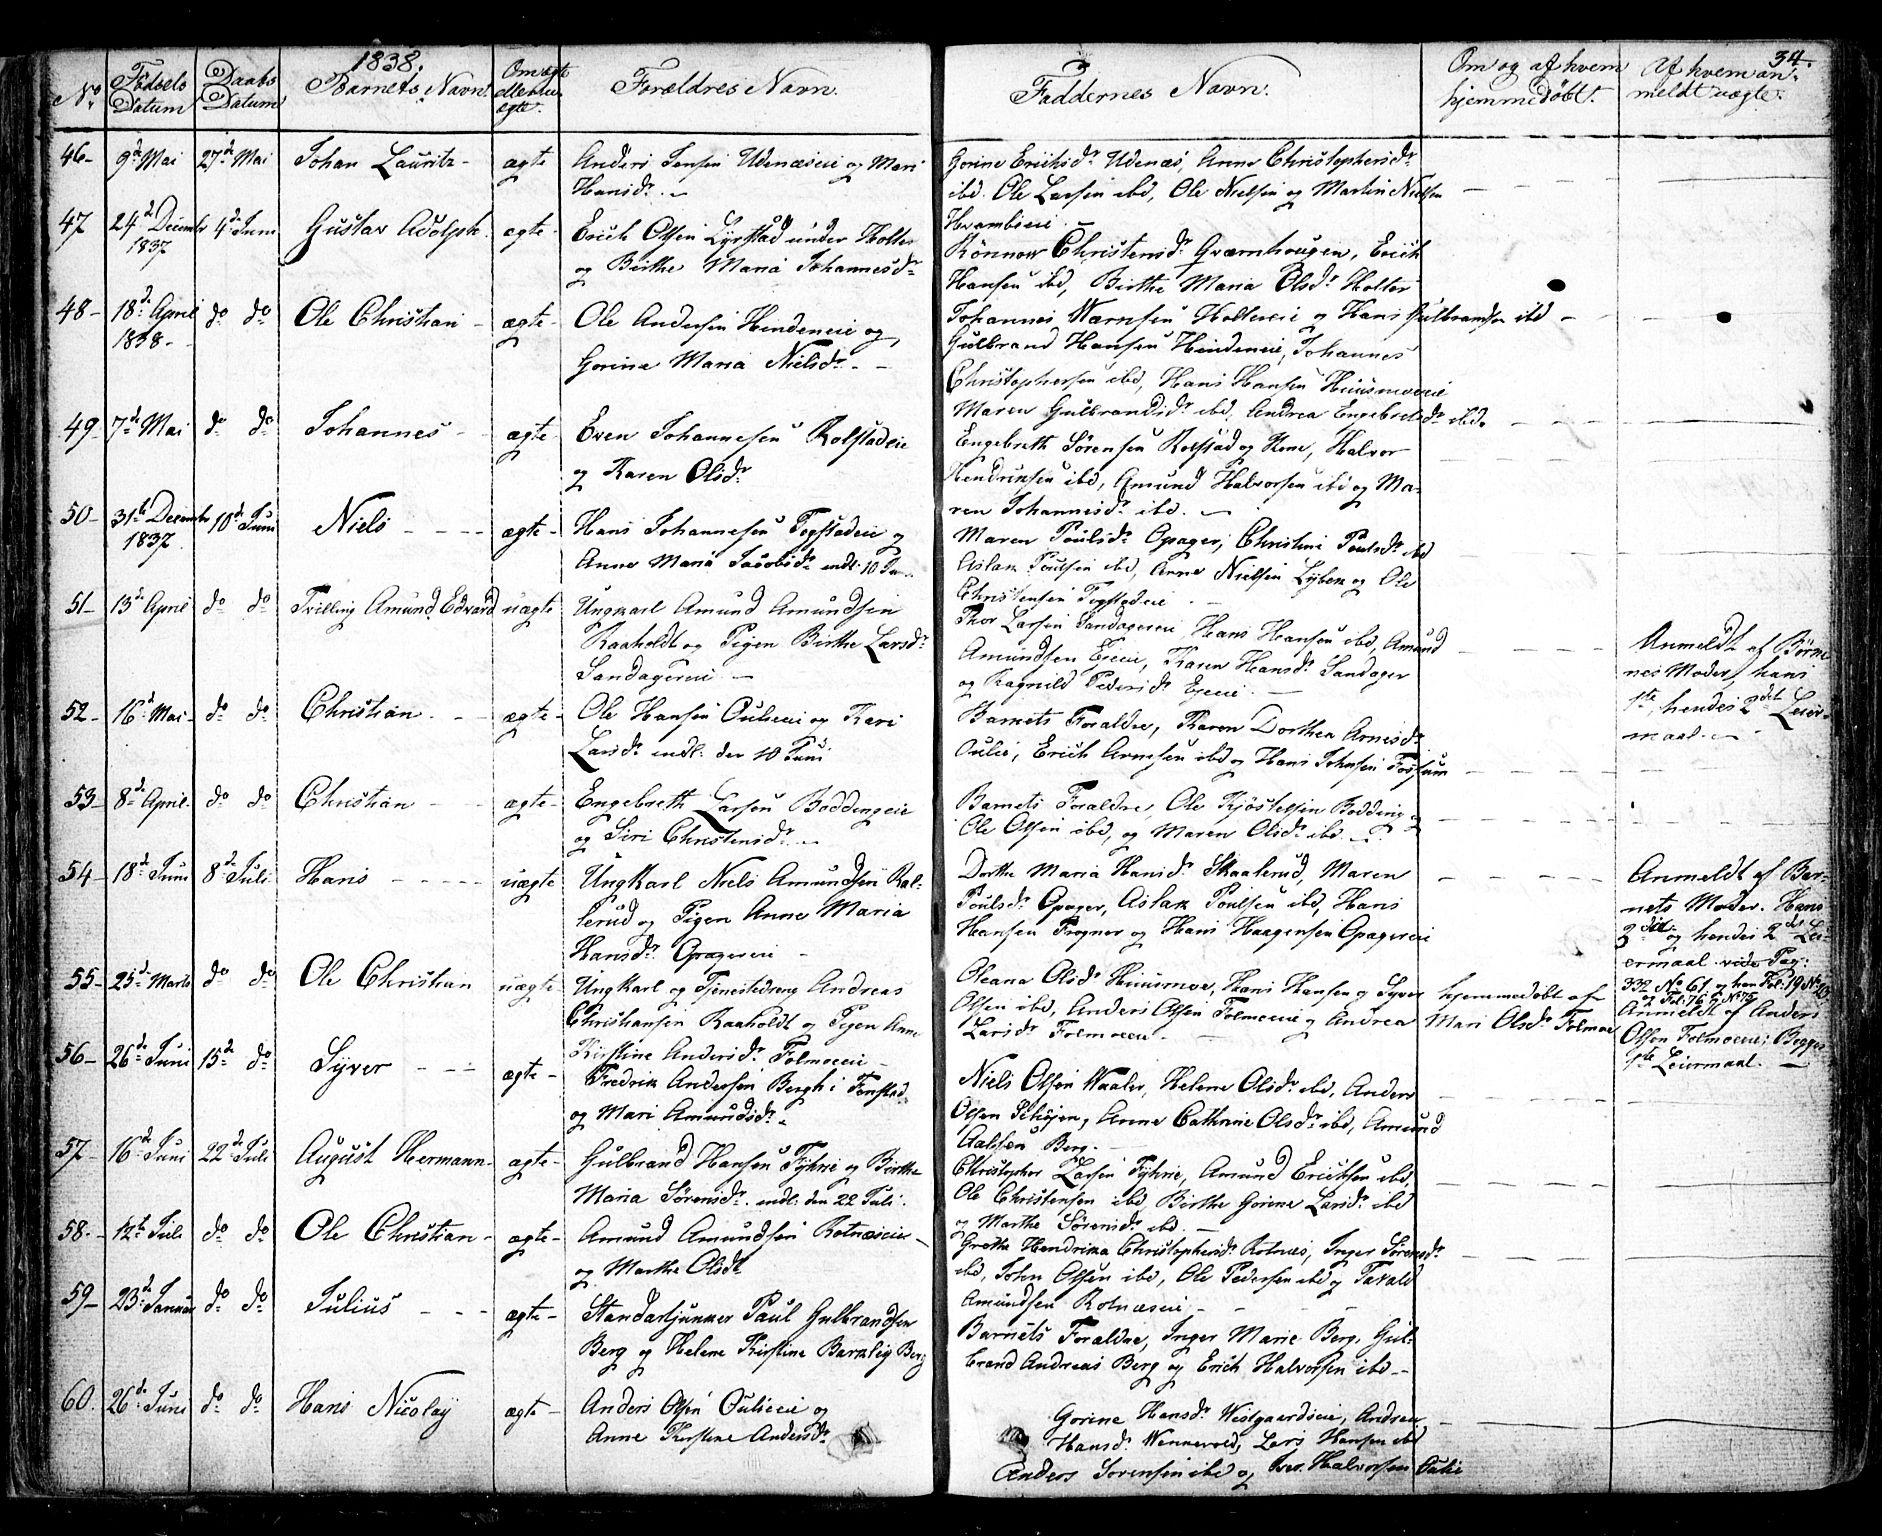 1838.
34.
No Fødsels Datum Daabs Datum Barnets Navn. Om ægte eller uægte. Forældres Navn. Faddernes Navn. Om og af hvem hjemmedøbt. Af hvem anmeldt uægte.
46- 9d Mai 27d Mai Johan Lauritz- ægte Anders Jensen Udenæseie og Mari
Hansdr. -
Gorine Erichsdr Udenæs, Anne Christophersdr
ibd. Ole Larsen ibd, Ole Nielsen og Martin Nielsen
47 24d Decembr 1837 4d Juni Gustav Adolph. ægte- Erich Olsen under Holter
og Birthe Maria Johannesdr
Rönnow Christensdr Græmhougen, Erich
Hansen ibd, Birthe Maria Olsdr Holter
Johannes Hollereie og Hans Gulbrandsen ibd -
48- 18d April 1838- do do Ole Christian - ægte- Ole Andersen Hendeneie og
Gorine Maria Nielsdr. - -
Gulbrand Hansen Hendeneie, Johannes
Christophersen ibd, Hans Hansen
Maren Gulbrandsdr ibd. Andrea Engebretsdr ibd.
49- 7d Mai do do Johannes- - ægte- Even Johannesen Rolstadeie
og Karen Olsdr
Engebreth Sørensen Rolstad og Kone, Halvor
Hendriksen ibd, Amund Halvorsen ibd og Ma-
ren Johannesdr ibd. -
50- 31te Decembr 1837 10d Juni Niels - - - - ægte- Hans Johannesen Togstadeie og
Anne Maria Jacobsdr indl. 10 Jun.
Maren Poulsdr Opager, Christine Poulsdr ibd
Aslak Poulsen ibd, Anne Nielsen Lybek og Ole
Christensen Togstadeie. -
51- 13d April do do Tvilling Amund, Edvard uægte Ungkarl Amund Amundsen
Raaholdt og Pigen Birthe Larsdr
Sandagereie -
Thor Larsen Sandagereie, Hans Hansen ibd, Amund
Amundsen Eieie, Karen Hansdr Sandager
og Ragnild Pedersdr Ejeie. -
Anmeldt af Børne
nes Moder, hans
1te, hendes 2det Leier-
maal. -
52- 16d Mai- do do Christian. - - ægte- Ole Hansen Oulieeie og Kari
Larsdr indl. den 10 Juni
Barnets Foraldre, Karen Dorthea Arnesdr
Oulie, Erich Arnesen ibd og Hans Johnsen Fossum
53- 8d April. do do Christian - - ægte- Engebreth Larsen Boddengeie
og Siri Christensdr. -
Barnets Foraldre, Ole Kjøstelsen Bodding og
Ole Olsen ibd, og Maren Olsdr ibd. -
54- 18d Juni 8d Juli Hans - - - - uægte Ungkarl Niels Amundsen Ral-
lerud og Pigen Anne Maria
Hansdr. Opagereie -
Dorthe Maria Hansdr Skaalerud, Maren
Poulsdr Opager, Aslak Poulsen ibd, Hans
Hansen Frogner og Hans Haagensen Opagereie
Anmeldt af Bar-
nets Moder. Hans
3die og hendes 2det Lei-
ermaal vide Pag:
332 No 61 og han Fol. 19 No 13
og Fol. 76 No 75
55- 25d Marts do do Ole Christian uægte Ungkarl og Tjenestedreng Andreas
Christiansen Raaholdt og Pigen Anne
Kirstine Andersdr. Folmoeeie -
Oleana Olsdr Huusmoe, Hans Hansen og Syver
Olsen ibd, Anders Olsen Folmoeeie og Andrea
Larsdr Folmoeeie. -
hjemmedøbt af
Mari Olsdr Folmoe
Anmeldt af Anders
Olsen Folmoeeie, Begges
1te Leiermaal. -
56- 26d Juni 15d do Syver - - - ægte- Fredrik Andersen Bergh i Tenstad
og Mari Amundsdr.
Niels Olsen Waaler, Helene Olsdr ibd, Anders
Olsen Schöjen, Anne Cathrine Olsdr ibd, Amund
Berg. -
57- 16d Juni 22d Juli August Hermann- ægte- Gulbrand Hansen Tyhrie og Birthe
Maria Sörensdr. indl. den 22 Juli.
Christopher Larsen Tyhrie, Amund Erichsen ibd,
Ole Christensen ibd Birthe Gorine Larsdr ibd
og Marthe Sörensdr ibd. -
58.- 12te Juli do do Ole Christian - ægte- Amund Amundsen Rotnæseie -
og Marthe Olsdr
Grethe Hendrika Christophersdr Rotnæs, Inger Sörensdr
ibd, John Olsen ibd, Ole Pedersen ibd og
Amundsen Rotnæseie -
59- 23d Januar do do Julius - - - ægte- Standartjunker Paul Gulbrandsen
Berg og Helene Kirstine Berg
Barnets Foraldre, Inger Marie Berg, Gul-
brand Andreas Berg og Erich Halvorsen ibd. -
60. 26d Juni do do Hans Nicolay ægte- Anders Olsen Oulieeie og
Anne Kirstine Andersdr
Gorine Hansdr. Westgaardseie, Andrea
Hansdr. Wennevold, Lars Hansen ibd
Anders Sorensen ibd og Halvorsen Oulie